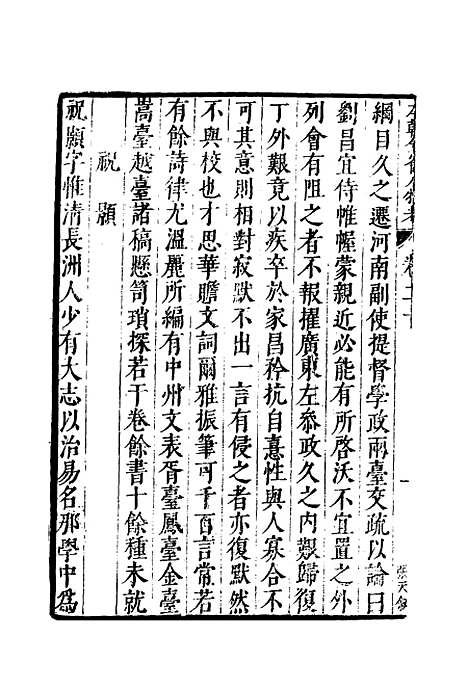 本朝分省人物考 卷二十 一
綱目久之遷河南副使提督學政兩臺交疏以論曰
劉昌宜侍帷幄蒙親近必能有所啓沃不宜置之外
列會有阻之者不報擢廣東左叅政久之內艱歸復
丁外艱竟以疾卒於家昌矜抗自憙性與人寡合不
可其意則相對寂默不出一言有侵之者亦復默然
不與校也才思華贍文詞爾雅振筆可千百言常若
有餘詩律尤溫麗所編有中州文表胥臺鳳臺金臺
嵩臺越臺諸稿懸笥瑣探若干卷餘書十餘種未就
祝顥
祝顥字惟清長洲人少有大志以治易名邢學中爲